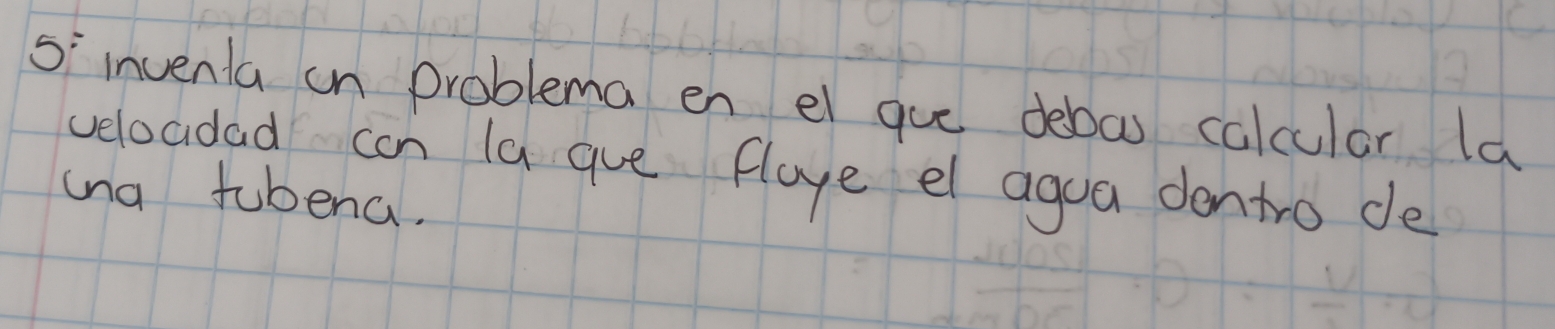 5- inventa un problema en el que debas calcular la
velocidad con la que fluye el agua dentro de
una tubería.